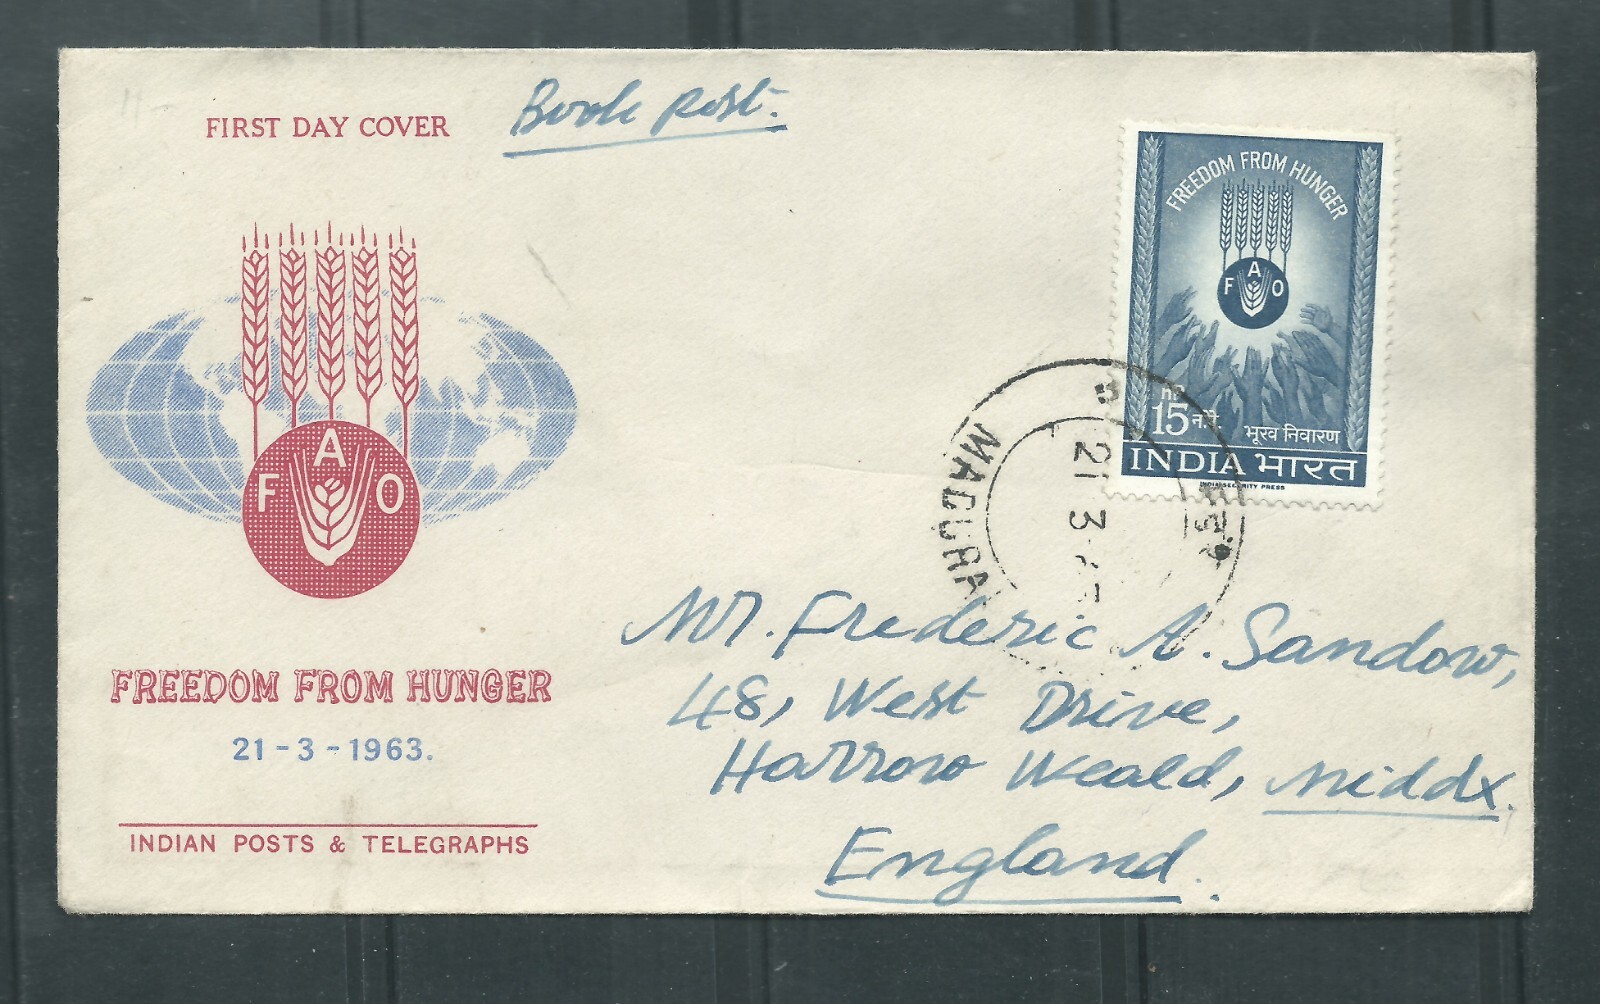 FIRST DAY COVER
Book post.
FREEDOM FROM HUNGER
F A O
nP
15 न.पै.
भूख निवारण
INDIA भारत
INDIA SECURITY PRESS
MADURAI
21 3
F A O
Mr. Frederic A. Sandow,
48, West Drive,
Harrow Weald, Middx.
England.
FREEDOM FROM HUNGER
21-3-1963.
INDIAN POSTS & TELEGRAPHS